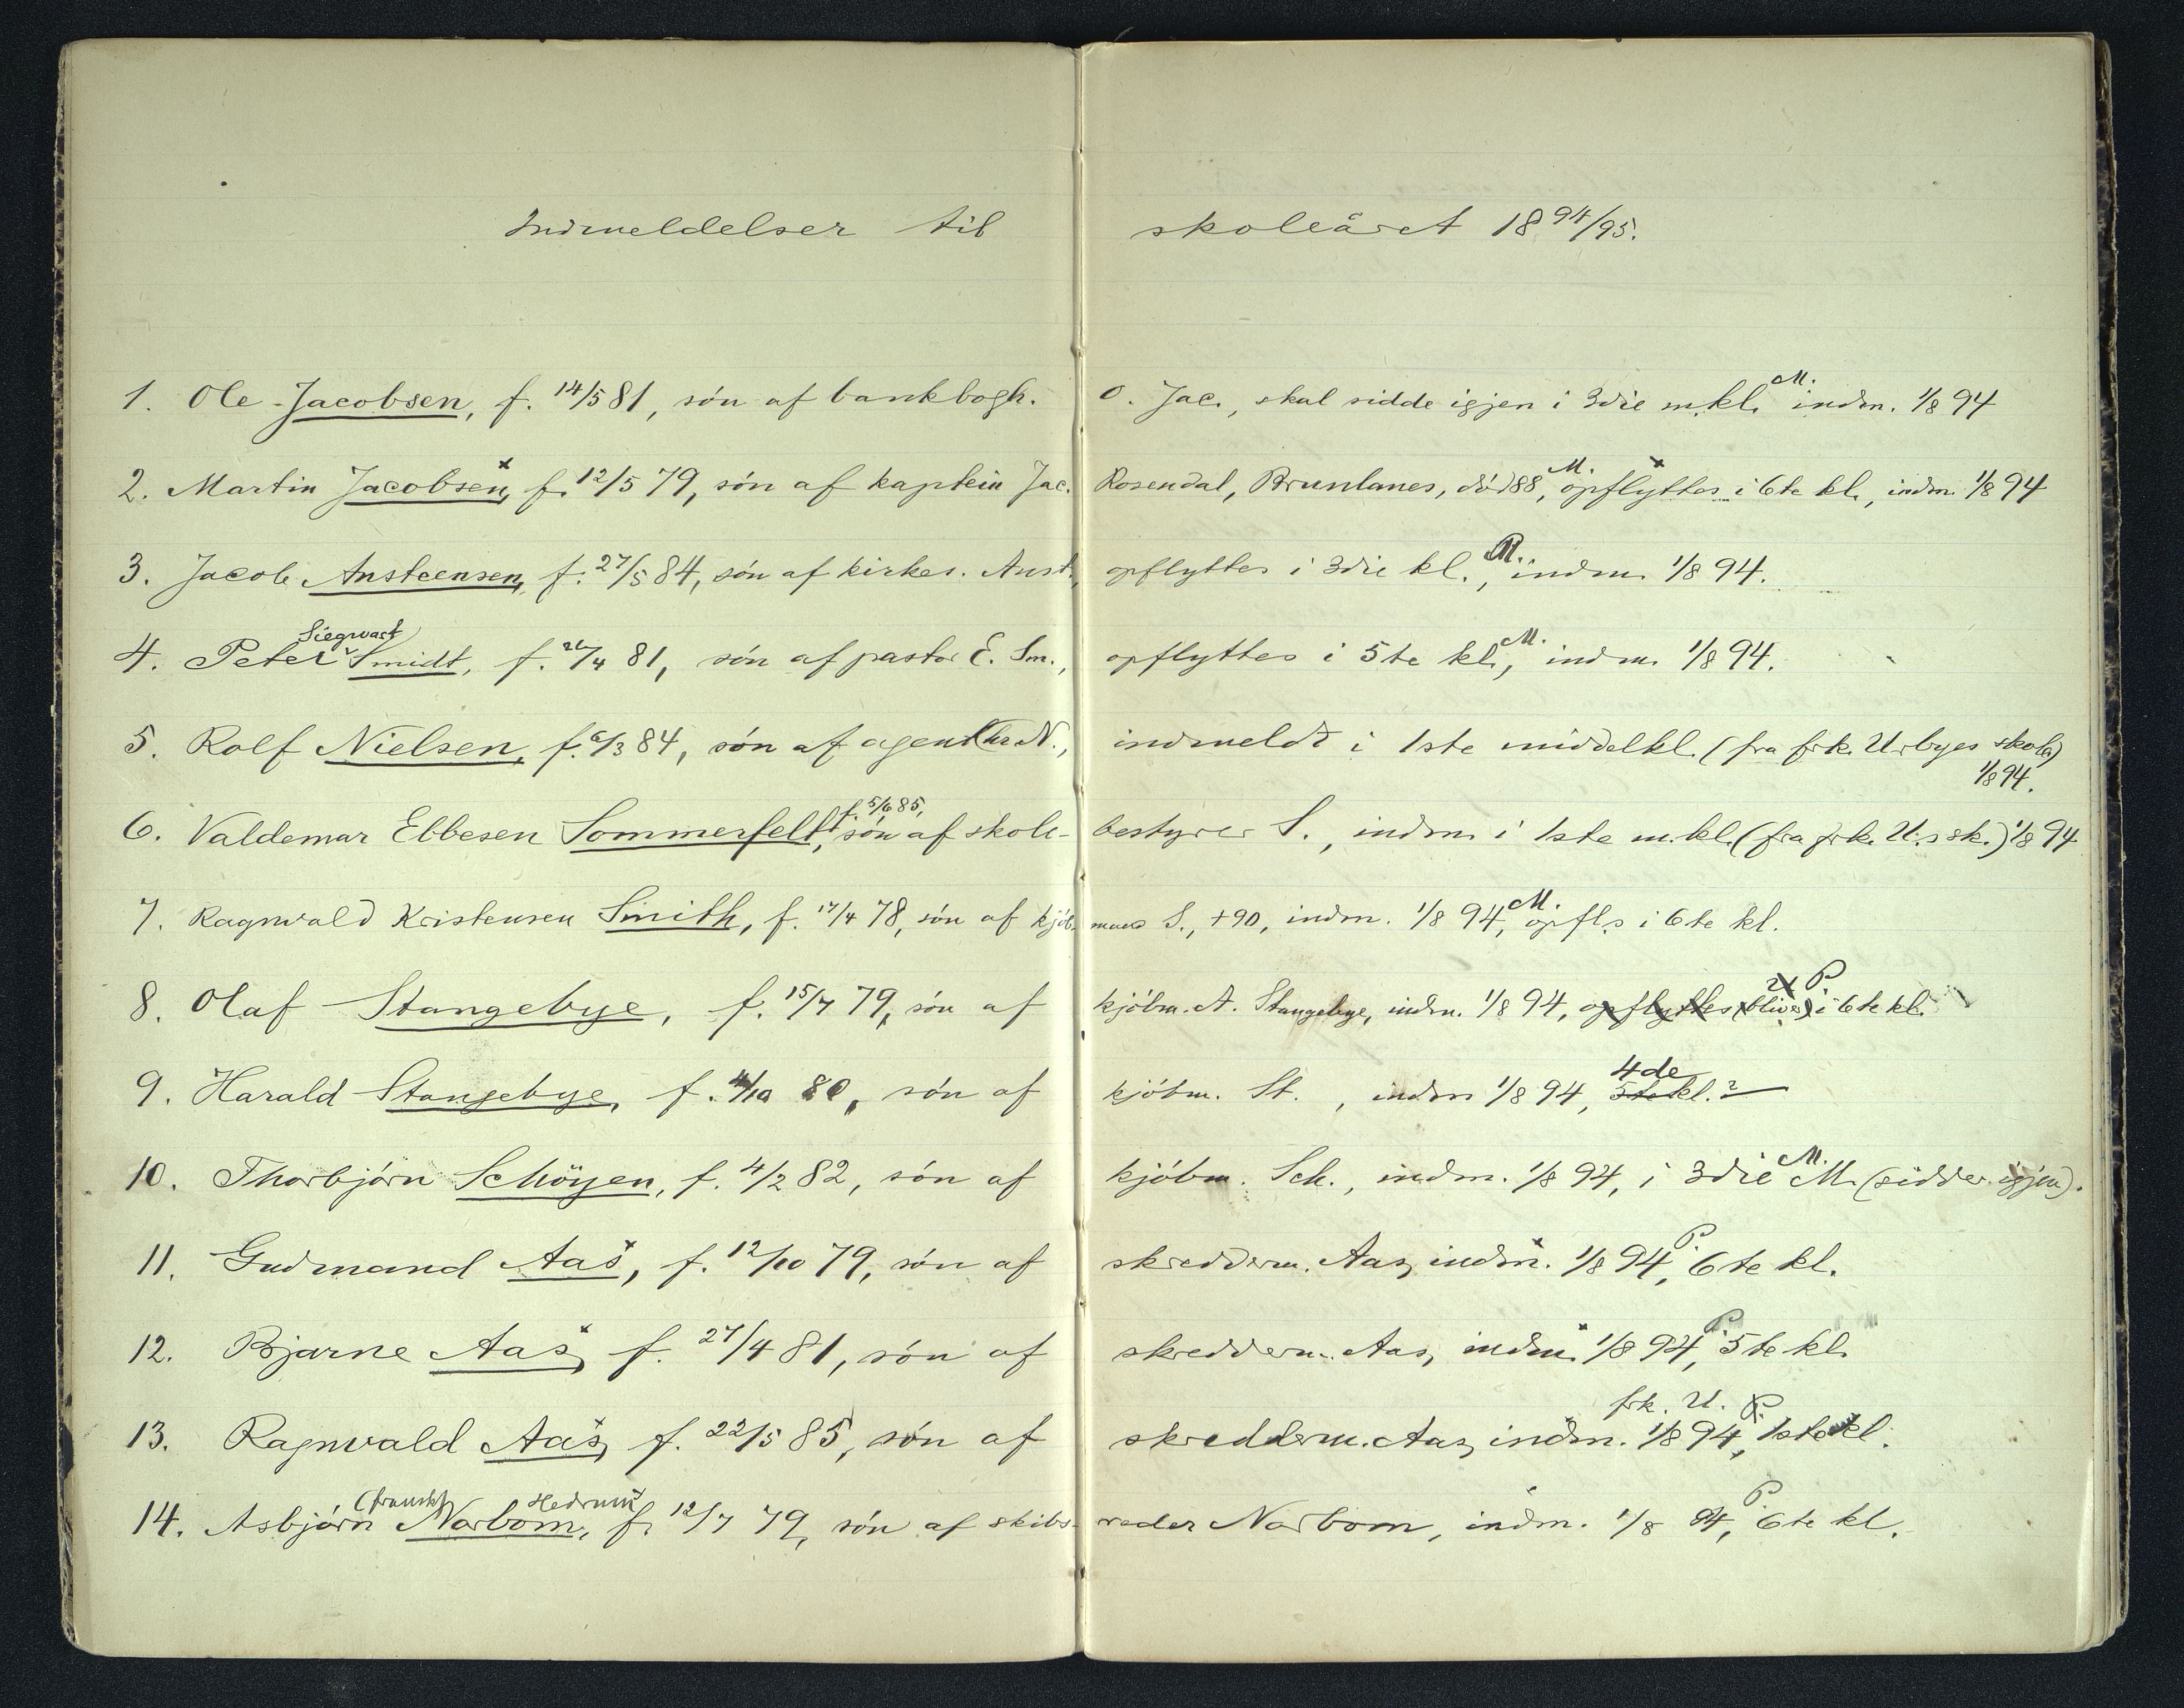 Indmeldelser til skoleåret 18 94/95.
1. Ole Jacobsen, f. 14/5 81, søn af bankbogh. O. Jac., skal sidde igjen i 3die m.kl. M. indm. 1/8 94
2. Martin Jacobsen, f. 12/5 79, søn af kaptein Jac. Rosendal, Brunlanes, død 88, M. opflyttes i 6te kl., indm. 1/8 94
3. Jacob Ansteensen, f. 27/5 84, søn af kirkes. Anst., opflyttes i 3die kl., M. indm. 1/8 94.
Siegwart
4. Peter Smidt, f. 26/4 81, søn af pastor E. Sm., opflyttes i 5te kl., M. indm. 1/8 94.
5. Rolf Nielsen, f. 6/3 84, søn af agent N., indmeldt i 1ste middelkl. (fra frk. Urbyes skole)
1/8 94.
f. 5/6 85,
6. Valdemar Ebbesen Sommerfelt, søn af skole- bestyrer S., indm. i 1ste m.kl. (fra frk. U.s sk.) 1/8 94
7. Ragnvald Kristensen Smith, f. 17/4 78, søn af kjøb- mand S., +90, indm. 1/8 94, M. opfl.s i 6te kl.
8. Olaf Stangebye, f. 15/7 79, søn af kjøbm. A. Stangebye, indm. 1/8 94, opflyttes (bliver) P. i 6te kl.
4de
9. Harald Stangebye, f. 4/10 80, søn af kjøbm. St., indm 1/8 94, 5te kl.?
10. Thorbjørn Schöyen, f. 4/2 82, søn af kjøbm. Sch., indm. 1/8 94, i 3die M. M. (sidder igjen).
11. Gudmand Aas, f. 12/10 79, søn af skredderm. Aas, indm. 1/8 94, P. 6te kl.
12. Bjarne Aas, f. 27/4 81, søn af skredderm. Aas, indm. 1/8 94, P. 5te kl.
frk. U. P.
13. Ragnvald Aas, f. 22/5 85, søn af skredderm. Aas, indm. 1/8 94, 1ste kl.
Hedrum
14. Asbjørn Narbom, f. 12/7 79, søn af skibs- reder Narbom, indm. 1/8 94, P. 6te kl.